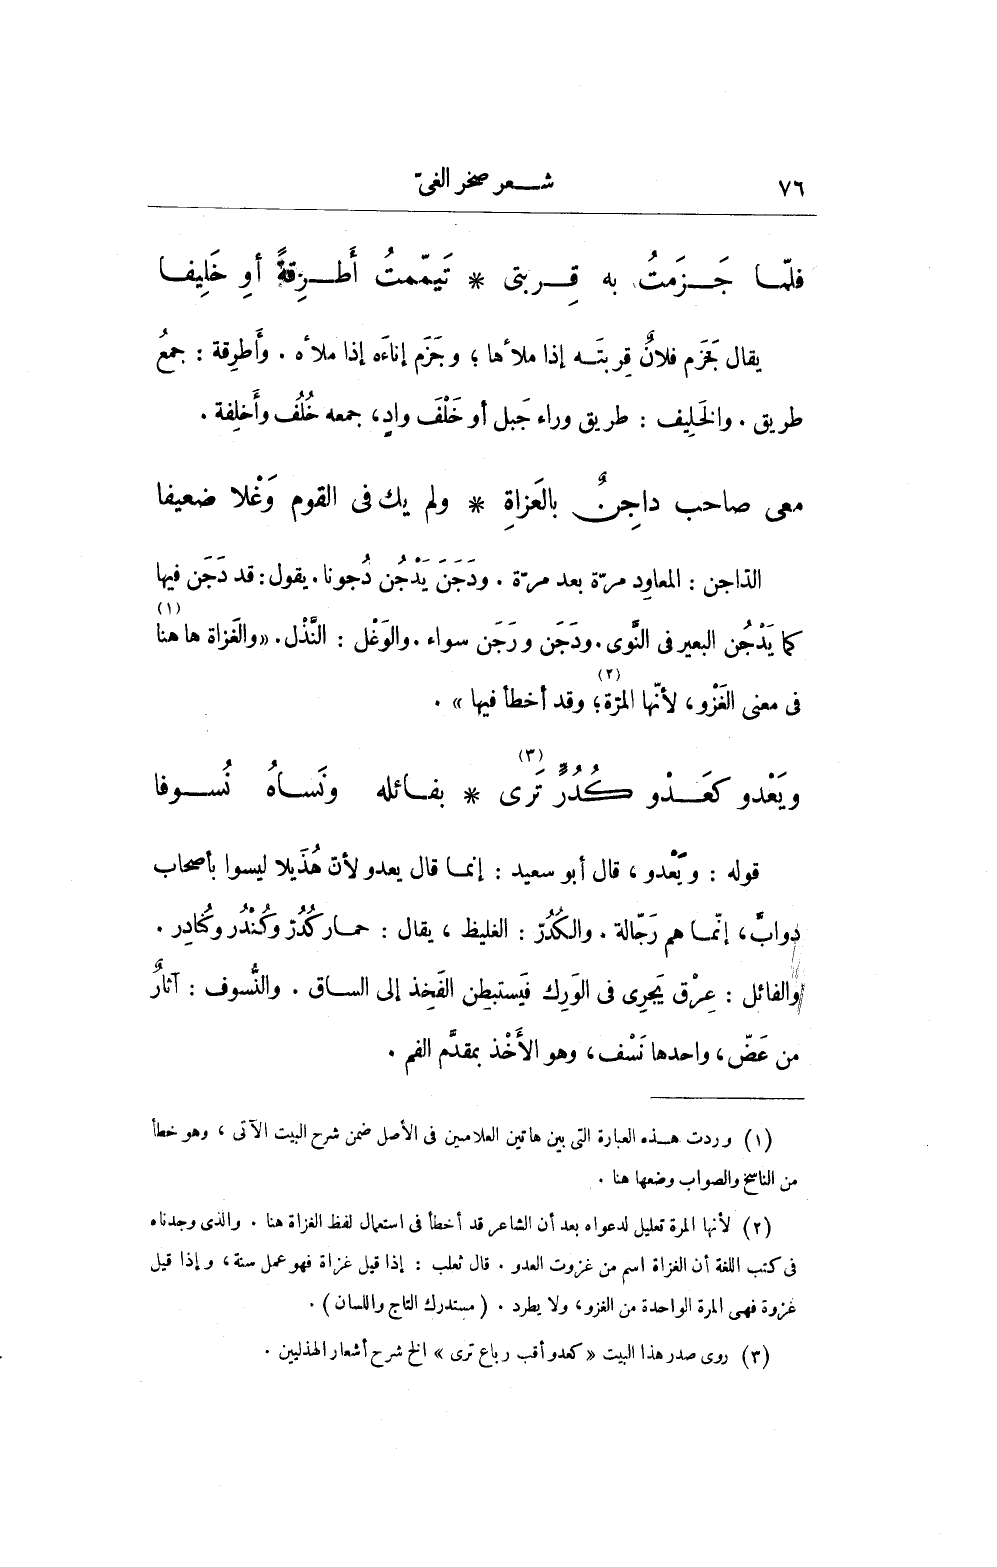 ٧٦
شـعر صخر الغىّ
فلمّا جَزَمتُ به قِربتى * تَيمّمتُ أَطرِقةً أو خَلِيفا
يقال بَجَزَم فلانٌ قِربتَه إذا ملأها ؛ وجَزَم إناءَه إذا ملأه . وأَطرِقة : جمعُ
طريق . والخَلِيف : طريق وراء جَبل أو خَلْفَ وادٍ، جمعه خُلُف وأَخلِفة .
معى صاحب داجِنٌ بالغَزاةِ * ولم يك فى القوم وَغْلا ضعيفا
الداجن : المعاوِد مرّة بعد مرّة . ودَجَنَ يَدْجُن دُجونا . يقول : قد دَجَن فيها
كما يَدْجُن البعير فى النَّوى . ودَجَن ورَجَن سواء . والوَغْل : النَّذْل . «والغَزاة ها هنا (١)
فى معنى الغَزْو، لأنّها المرّة (٢)؛ وقد أخطأ فيها» .
ويَعْدو كعَدْو كُدُرٍّ تَرى (٣) * بفائله ونَساهُ نُسوفا
قوله : ويَعْدو ، قال أبو سعيد : إنما قال يعدو لأنّ هُذَيلا ليسوا بأصحاب
دوابَّ، إنّما هم رَجّالة . والكُدُرّ : الغليظ ، يقال : حمار كُدُرّ وكُنْدُر وكُنادِر .
والفائل : عِرْق يَجرِى فى الوَرِك فيَستبطِن الفَخِذ إلى الساق . والنُّسوف : آثارٌ
من عَضّ، واحدها نَسْف، وهو الأَخْذ بمقدَّم الفم .
(١) وردت هذه العبارة التى بين هاتين العلامتين فى الأصل ضمن شرح البيت الآتى ، وهو خطأ
من الناسخ والصواب وضعها هنا .
(٢) لأنها المرة تعليل لدعواه بعد أن الشاعر قد أخطأ فى استعمال لفظ الغزاة هنا . والذى وجدناه
فى كتب اللغة أن الغزاة اسم من غزوت العدو . قال ثعلب : إذا قيل غزاة فهو عمل سنة ، وإذا قيل
غزوة فهى المرة الواحدة من الغزو، ولا يطرد . (مستدرك التاج واللسان) .
(٣) روى صدر هذا البيت «كعدو أقب رباع ترى» الخ شرح أشعار الهذليين .